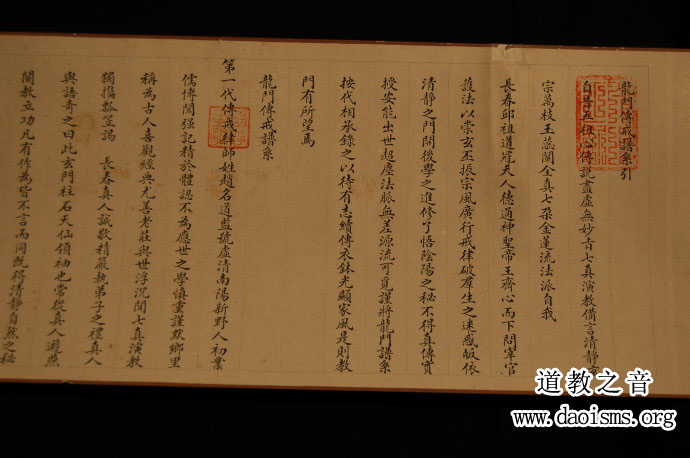 龍門傳戒譜系引
自昔五祖心傳說盡虛無妙音七真演教備言清靜
宗萬枝玉蕊闡全真七朶金蓮流法派自我
長春邱祖道冠天人德通神聖帝王齊心而下問宰官
護法以崇玄丕振宗風廣行戒律破羣生之迷惑皈依
清靜之門開後學之進修了悟陰陽之秘不得真傳實
授安能出世超塵法脈無差源流可覓謹將龍門譜系
按代相承錄之以待有志續傳衣鉢光顯家風是則教
門有所望焉
龍門傳戒譜系
第一代傳戒律師姓趙名道堅號虛清南陽新野人初業
儒博聞强記精於體認不為應世之學慎重謹默鄉里
稱為古人喜觀經典尤善老莊與世浮沉聞七真演教
獨攜瓢笠謁 長春真人誠敬精嚴執弟子之禮真人
與語奇之曰此玄門柱石天仙領袖也常從真人遊燕
闡教立功凡有作為皆不言而同既得清靜自然之秘
道教之音
www.daoisms.org